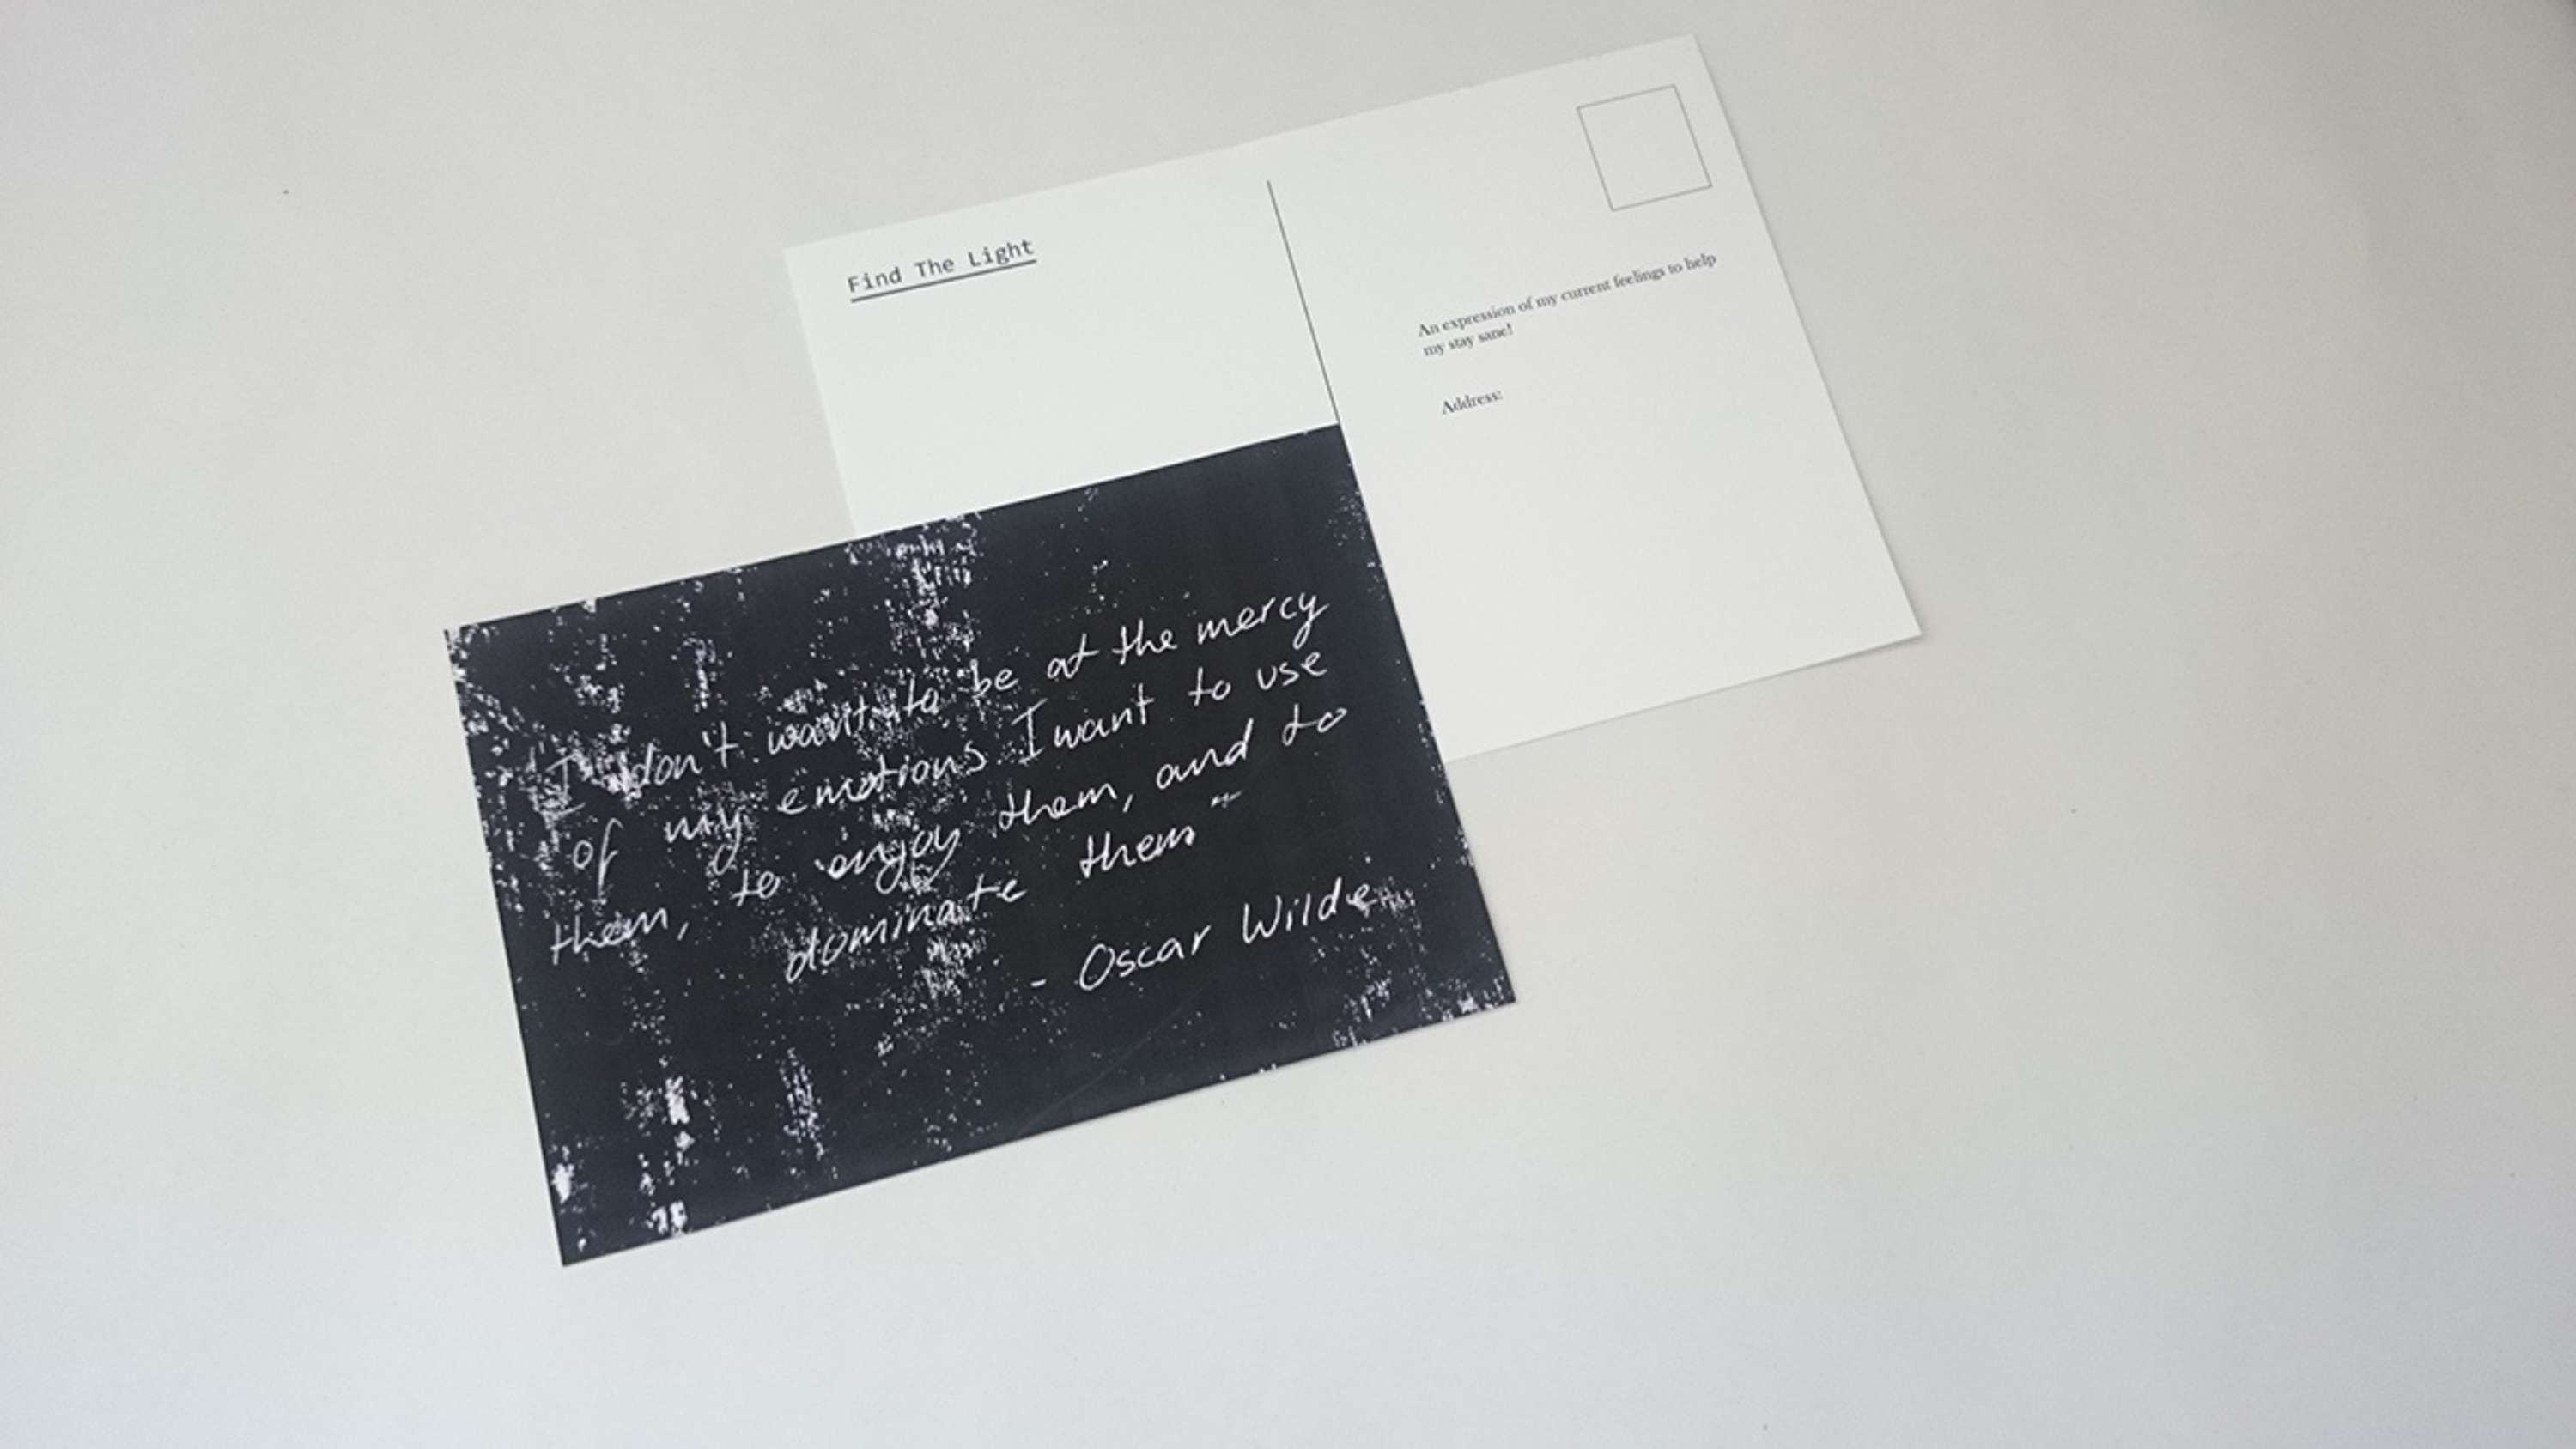 Find The Light
An expression of my current feelings to help
my stay sane!
Address:
"I don't want to be at the mercy
of my emotions. I want to use
them, to enjoy them, and to
dominate them"
- Oscar Wilde